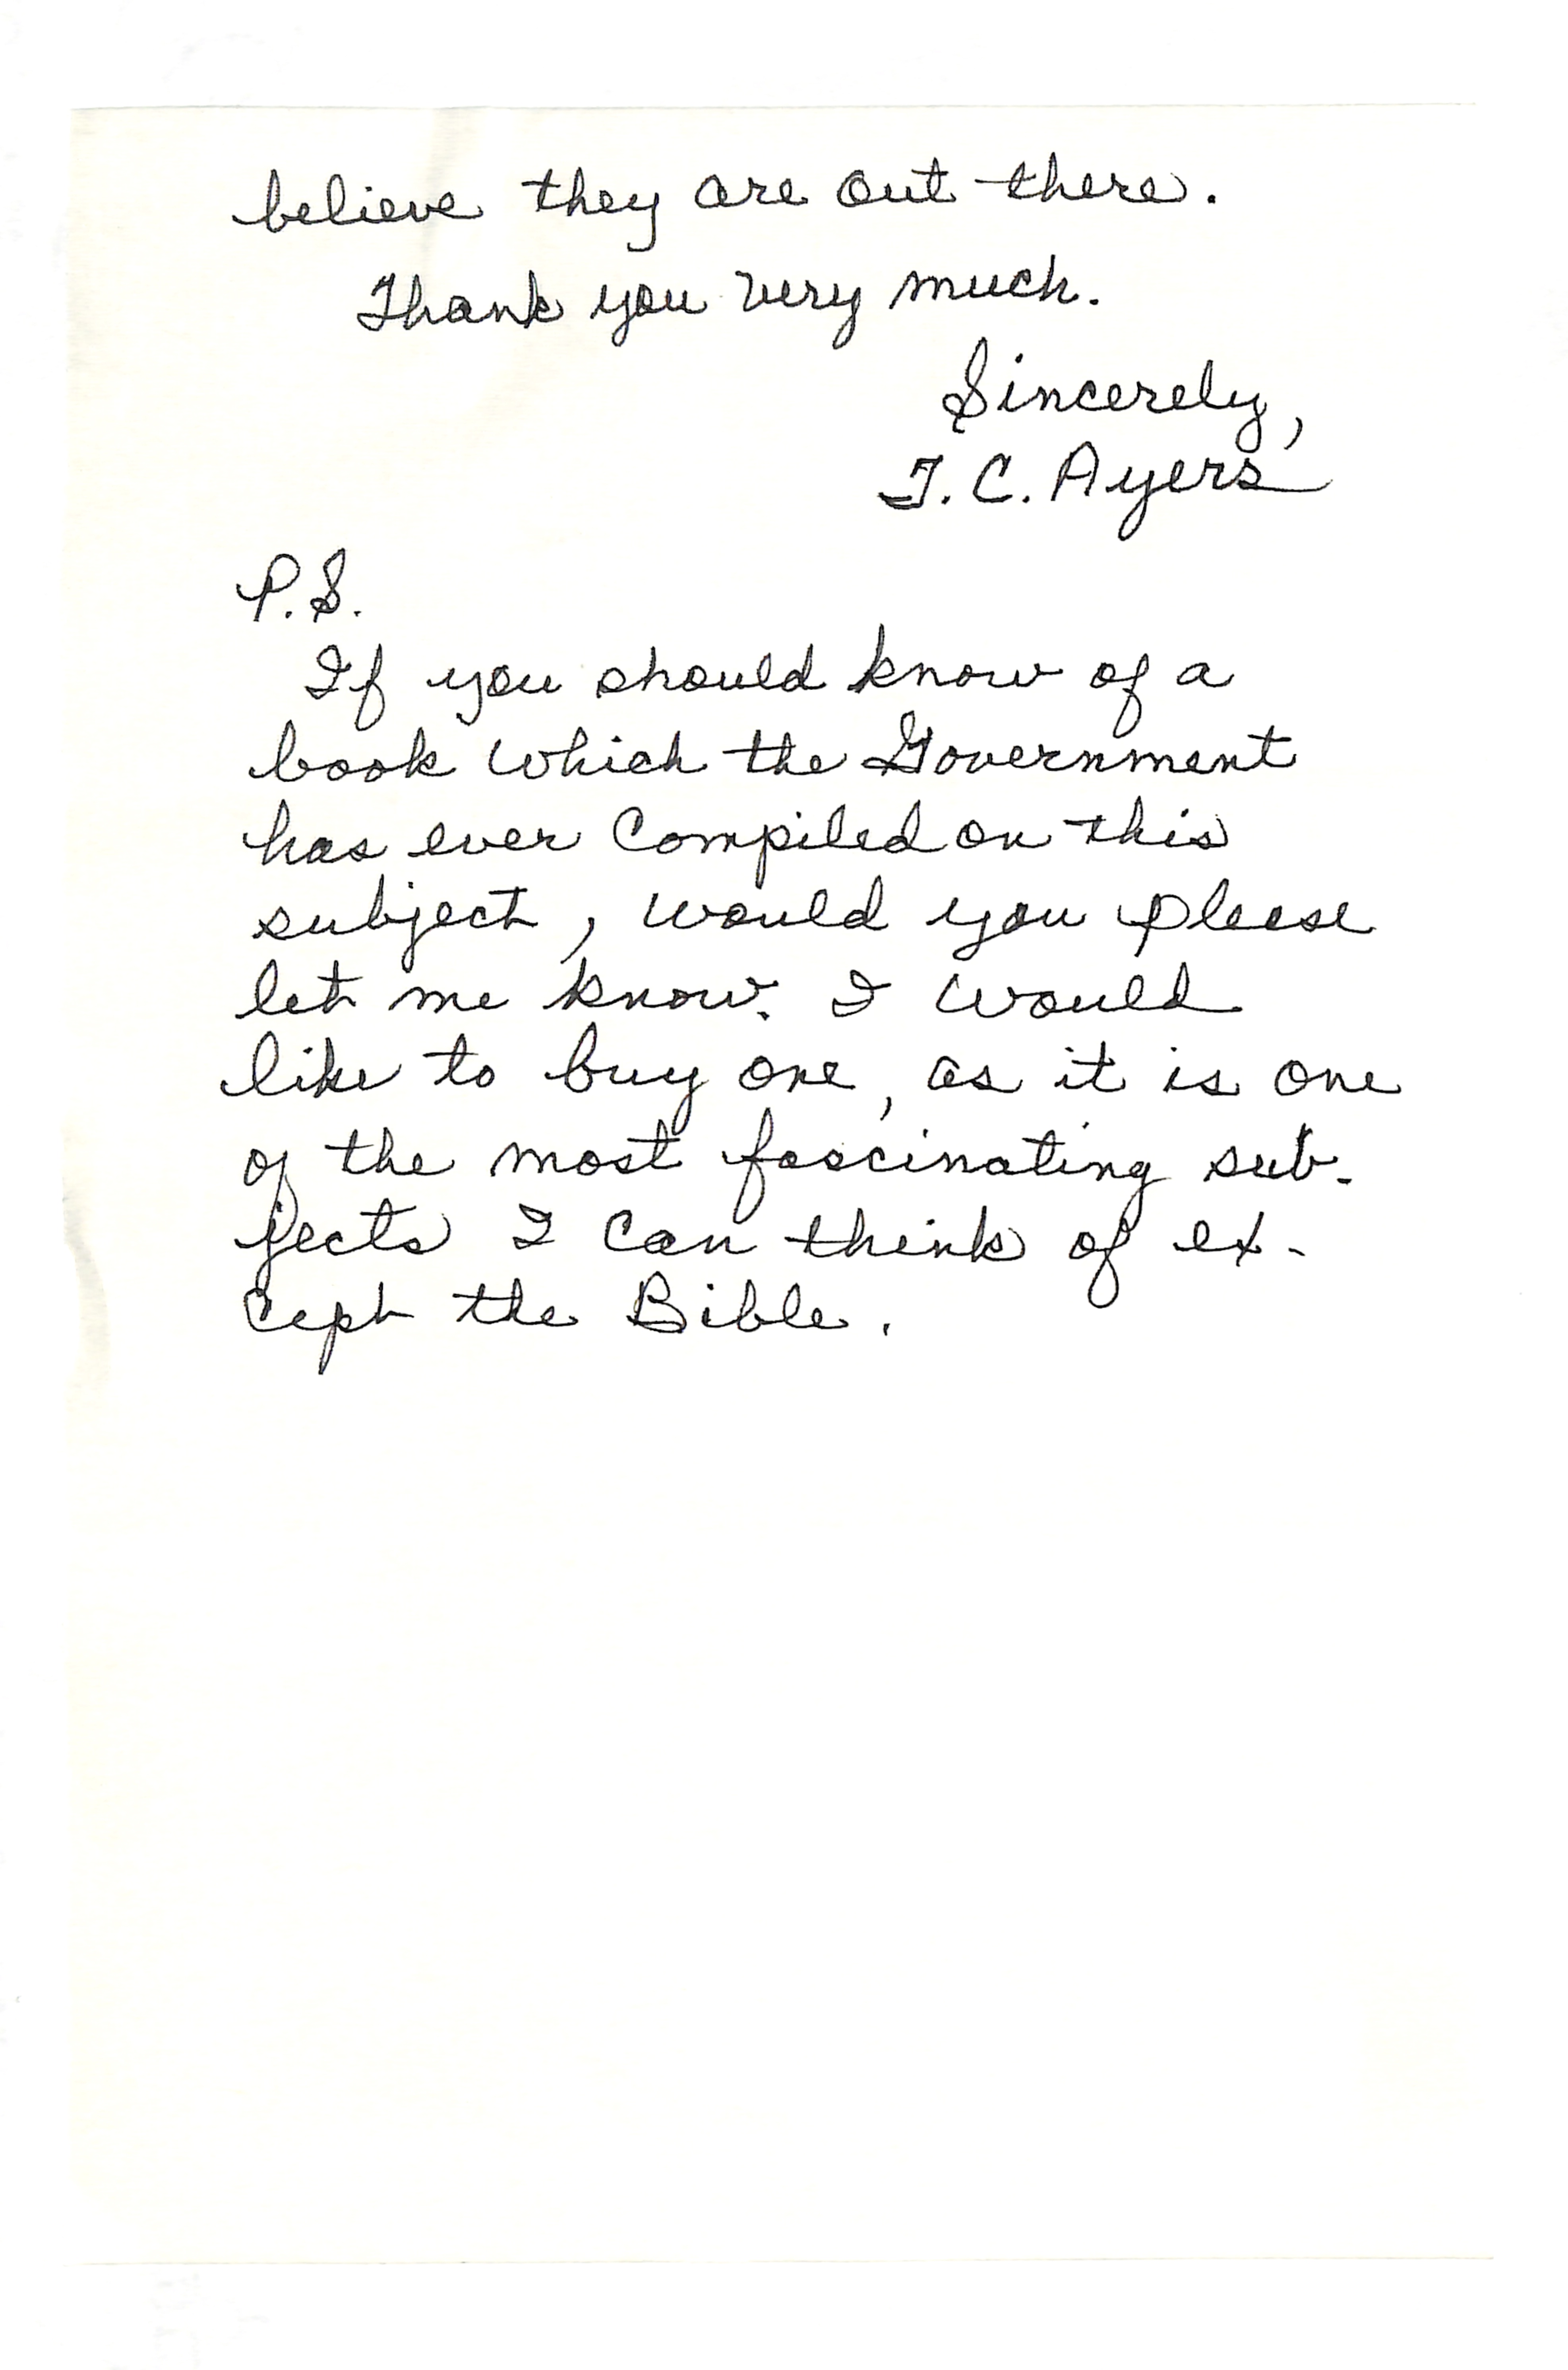 believe they are out there.
Thank you very much.
Sincerely,
T. C. Ayers
P.S.
If you should know of a
book which the Government
has ever compiled on this
subject, would you please
let me know. I would
like to buy one, as it is one
of the most fascinating sub-
jects I can think of ex-
cept the Bible.